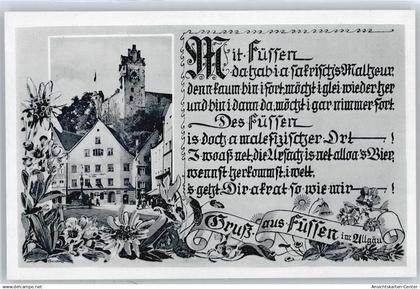 Mit Füssen
da hab i a sakrisch's Malheur,
denn kaum bin i fort, möcht i glei wieder her
und bin i dann da, möcht i gar nimmer fort.
Des Füssen
is doch a malefizischer Ort — !
I woaß net, die Ursach is net alloa's Bier,
wennst herkommst, i wett,
s'geht Dir akrat so wie mir — !
Gruß aus Füssen im Allgäu
Ansichtskarten-Center